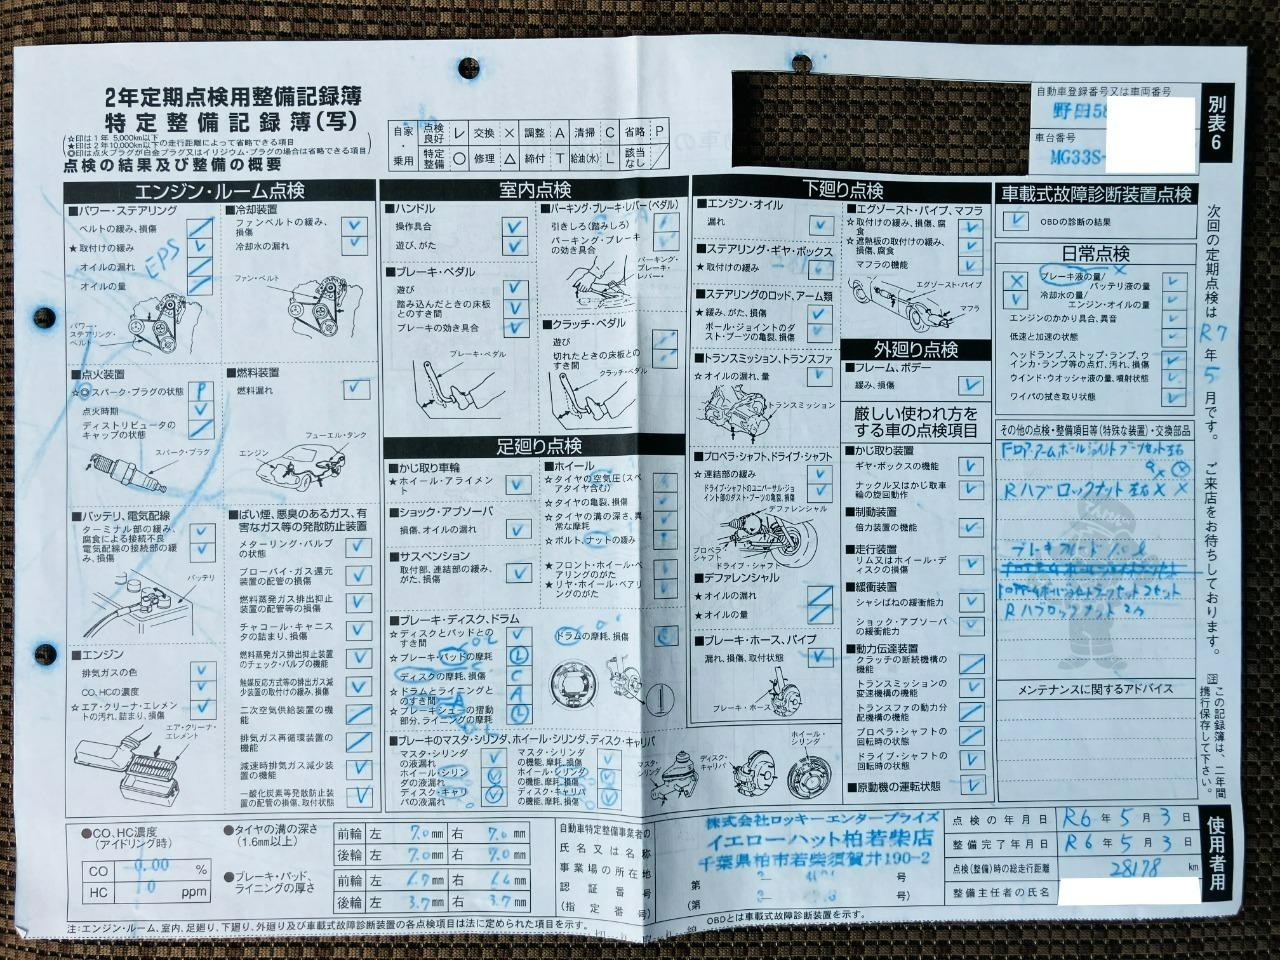 2年定期点検用整備記録簿
特定整備記録簿(写)
☆印は1年 5,000km以下
★印は2年10,000km以下の走行距離によって省略できる項目
◎印は点火プラグが白金プラグ又はイリジウム・プラグの場合は省略できる項目
点検の結果及び整備の概要
自家・乗用
点検良好 レ 交換 × 調整 A 清掃 C 省略 P
特定整備 ○ 修理 △ 締付 T 給油(水) L 該当なし ／
自動車登録番号又は車両番号
野田58
車台番号
MG33S-
別表6
エンジン・ルーム点検
■パワー・ステアリング
ベルトの緩み、損傷
★取付けの緩み
オイルの漏れ
オイルの量
EPS
パワー・ステアリング・ベルト
■冷却装置
ファンベルトの緩み、損傷
冷却水の漏れ
ファン・ベルト
■点火装置
☆◎スパーク・プラグの状態 P
点火時期
ディストリビュータのキャップの状態
スパーク・プラグ
■燃料装置
燃料漏れ
フューエル・タンク
エンジン
■バッテリ、電気配線
ターミナル部の緩み、腐食による接続不良
電気配線の接続部の緩み、損傷
バッテリ
■エンジン
排気ガスの色
CO、HCの濃度
☆エア・クリーナ・エレメントの汚れ、詰まり、損傷
エア・クリーナ・エレメント
■ばい煙、悪臭のあるガス、有害なガス等の発散防止装置
メターリング・バルブの状態
ブローバイ・ガス還元装置の配管の損傷
燃料蒸発ガス排出抑止装置の配管等の損傷
チャコール・キャニスタの詰まり、損傷
燃料蒸発ガス排出抑止装置のチェック・バルブの機能
触媒反応方式等の排出ガス減少装置の取付けの緩み、損傷
二次空気供給装置の機能
排気ガス再循環装置の機能
減速時排気ガス減少装置の機能
一酸化炭素等発散防止装置の配管の損傷、取付状態
室内点検
■ハンドル
操作具合
遊び、がた
■ブレーキ・ペダル
遊び
踏み込んだときの床板とのすき間
ブレーキの効き具合
ブレーキ・ペダル
■パーキング・ブレーキ・レバー(ペダル)
引きしろ(踏みしろ)
パーキング・ブレーキの効き具合
パーキング・ブレーキ・レバー
■クラッチ・ペダル
遊び
切れたときの床板とのすき間
クラッチ・ペダル
足廻り点検
■かじ取り車輪
★ホイール・アライメント
■ショック・アブソーバ
損傷、オイルの漏れ
■サスペンション
取付部、連結部の緩み、がた、損傷
■ホイール
☆タイヤの空気圧(スペアタイヤ含む)
☆タイヤの亀裂、損傷
☆タイヤの溝の深さ、異常な摩耗
☆ボルト、ナットの緩み
★フロント・ホイール・ベアリングのがた
★リヤ・ホイール・ベアリングのがた
■ブレーキ・ディスク、ドラム
☆ディスクとパッドとのすき間
☆ブレーキ・パッドの摩耗
ディスクの摩耗、損傷
☆ドラムとライニングとのすき間
☆ブレーキシューの摺動部分、ライニングの摩耗
ドラムの摩耗、損傷
■ブレーキのマスタ・シリンダ、ホイール・シリンダ、ディスク・キャリパ
マスタ・シリンダの液漏れ
ホイール・シリンダの液漏れ
ディスク・キャリパの液漏れ
マスタ・シリンダの機能、摩耗、損傷
ホイール・シリンダの機能、摩耗、損傷
ディスク・キャリパの機能、摩耗、損傷
マスタ・シリンダ
ディスク・キャリパ
ホイール・シリンダ
下廻り点検
■エンジン・オイル
漏れ
■ステアリング・ギヤ・ボックス
★取付けの緩み
■ステアリングのロッド、アーム類
★緩み、がた、損傷
ボール・ジョイントのダスト・ブーツの亀裂、損傷
■トランスミッション、トランスファ
☆オイルの漏れ、量
トランスミッション
■プロペラ・シャフト、ドライブ・シャフト
☆連結部の緩み
ドライブ・シャフトのユニバーサル・ジョイント部のダスト・ブーツの亀裂、損傷
デファレンシャル
プロペラ・シャフト
ドライブ・シャフト
■デファレンシャル
★オイルの漏れ
★オイルの量
■ブレーキ・ホース、パイプ
漏れ、損傷、取付状態
ブレーキ・ホース
■エグゾースト・パイプ、マフラ
☆取付けの緩み、損傷、腐食
☆遮熱板の取付けの緩み、損傷、腐食
マフラの機能
エグゾースト・パイプ
マフラ
外廻り点検
■フレーム、ボデー
緩み、損傷
厳しい使われ方をする車の点検項目
■かじ取り装置
ギヤ・ボックスの機能
ナックル又はかじ取車輪の旋回動作
■制動装置
倍力装置の機能
■走行装置
リム又はホイール・ディスクの損傷
■緩衝装置
シャシばねの緩衝能力
ショック・アブソーバの緩衝能力
■動力伝達装置
クラッチの断続機構の機能
トランスミッションの変速機構の機能
トランスファの動力分配機構の機能
プロペラ・シャフトの回転時の状態
ドライブ・シャフトの回転時の状態
■原動機の運転状態
車載式故障診断装置点検
OBDの診断の結果
日常点検
ブレーキ液の量/バッテリ液の量
冷却水の量/エンジン・オイルの量
エンジンのかかり具合、異音
低速と加速の状態
ヘッドランプ、ストップ・ランプ、ウインカ・ランプ等の点灯、汚れ、損傷
ウインド・ウオッシャ液の量、噴射状態
ワイパの拭き取り状態
その他の点検・整備項目等(特殊な装置)・交換部品
Rハブロックナット 左右 × ×
Rハブロックナット 2ヶ
メンテナンスに関するアドバイス
次回の定期点検は R7年 5月です。ご来店をお待ちしております。
注 この記録簿は、二年間携行保存して下さい。
使用者用
●CO、HC濃度(アイドリング時)
CO 0.00 %
HC 0 ppm
●タイヤの溝の深さ(1.6mm以上)
前輪 左 7.0 mm 右 7.0 mm
後輪 左 7.0 mm 右 7.0 mm
●ブレーキ・パッド、ライニングの厚さ
前輪 左 6.7 mm 右 6.4 mm
後輪 左 3.7 mm 右 3.7 mm
自動車特定整備事業者の
氏名又は名称
事業場の所在地
認証番号
(指定番号)
株式会社ロッキーエンタープライズ
イエローハット柏若柴店
千葉県柏市若柴須賀井190-2
第 号
(第 号)
点検の年月日 R6年 5月 3日
整備完了年月日 R6年 5月 3日
点検(整備)時の総走行距離 28178 km
整備主任者の氏名
OBDとは車載式故障診断装置を示す。
注:エンジン・ルーム、室内、足廻り、下廻り、外廻り及び車載式故障診断装置の各点検項目は法に定められた項目を示す。